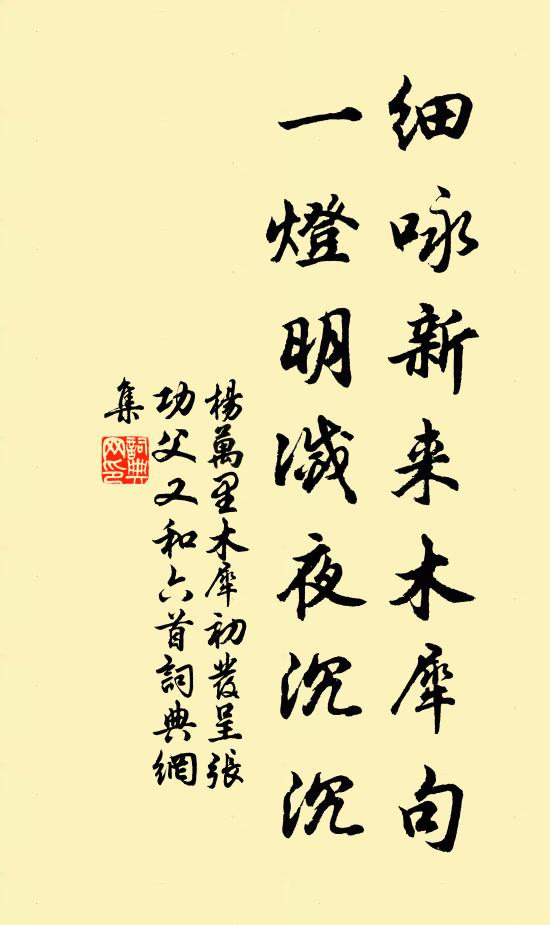 细咏新来木犀句
一燈明滅夜沉沉
楊萬里木犀初發呈張
功父又和六首詞典網
集
詞典网印